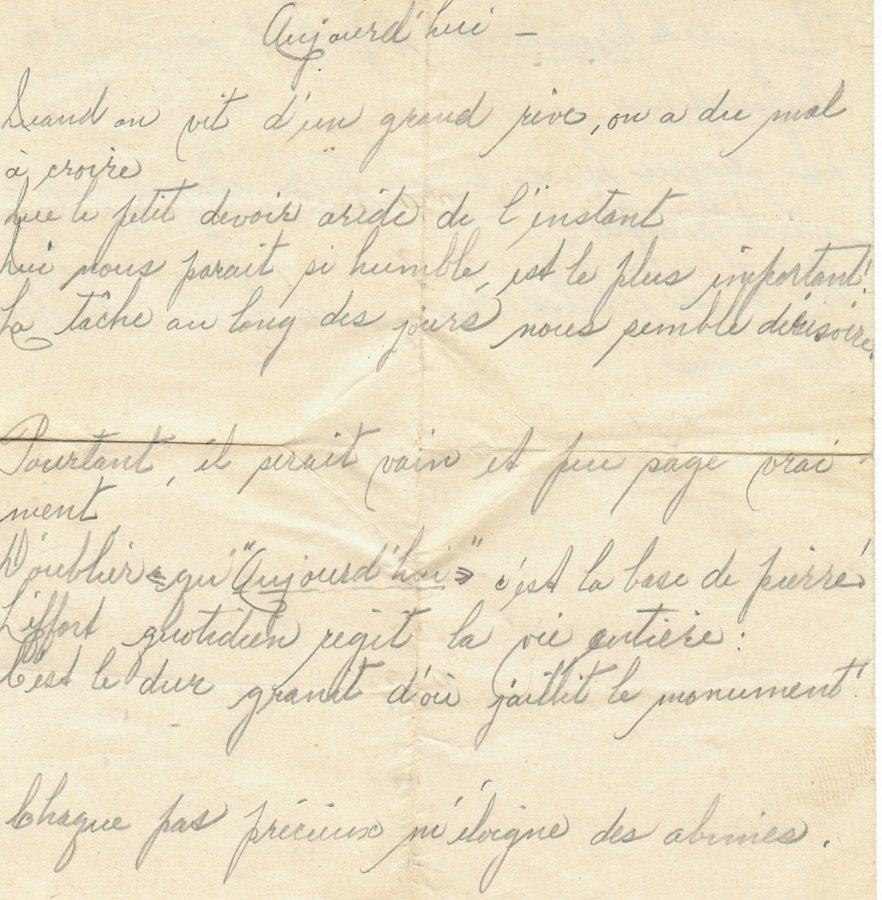 Aujourd'hui -
Quand on vit d'un grand rêve, on a du mal
à croire
Que le petit devoir aride de l'instant
Qui nous parait si humble, est le plus important!
La tâche au long des jours nous semble dérisoire.
Pourtant, il serait vain et peu sage vrai
ment
D'oublier qu' "Aujourd'hui" c'est la base de pierre
L'effort quotidien regit la vie entière :
C'est le dur granit d'où jaillit le monument!
Chaque pas précieux m'éloigne des abimes.